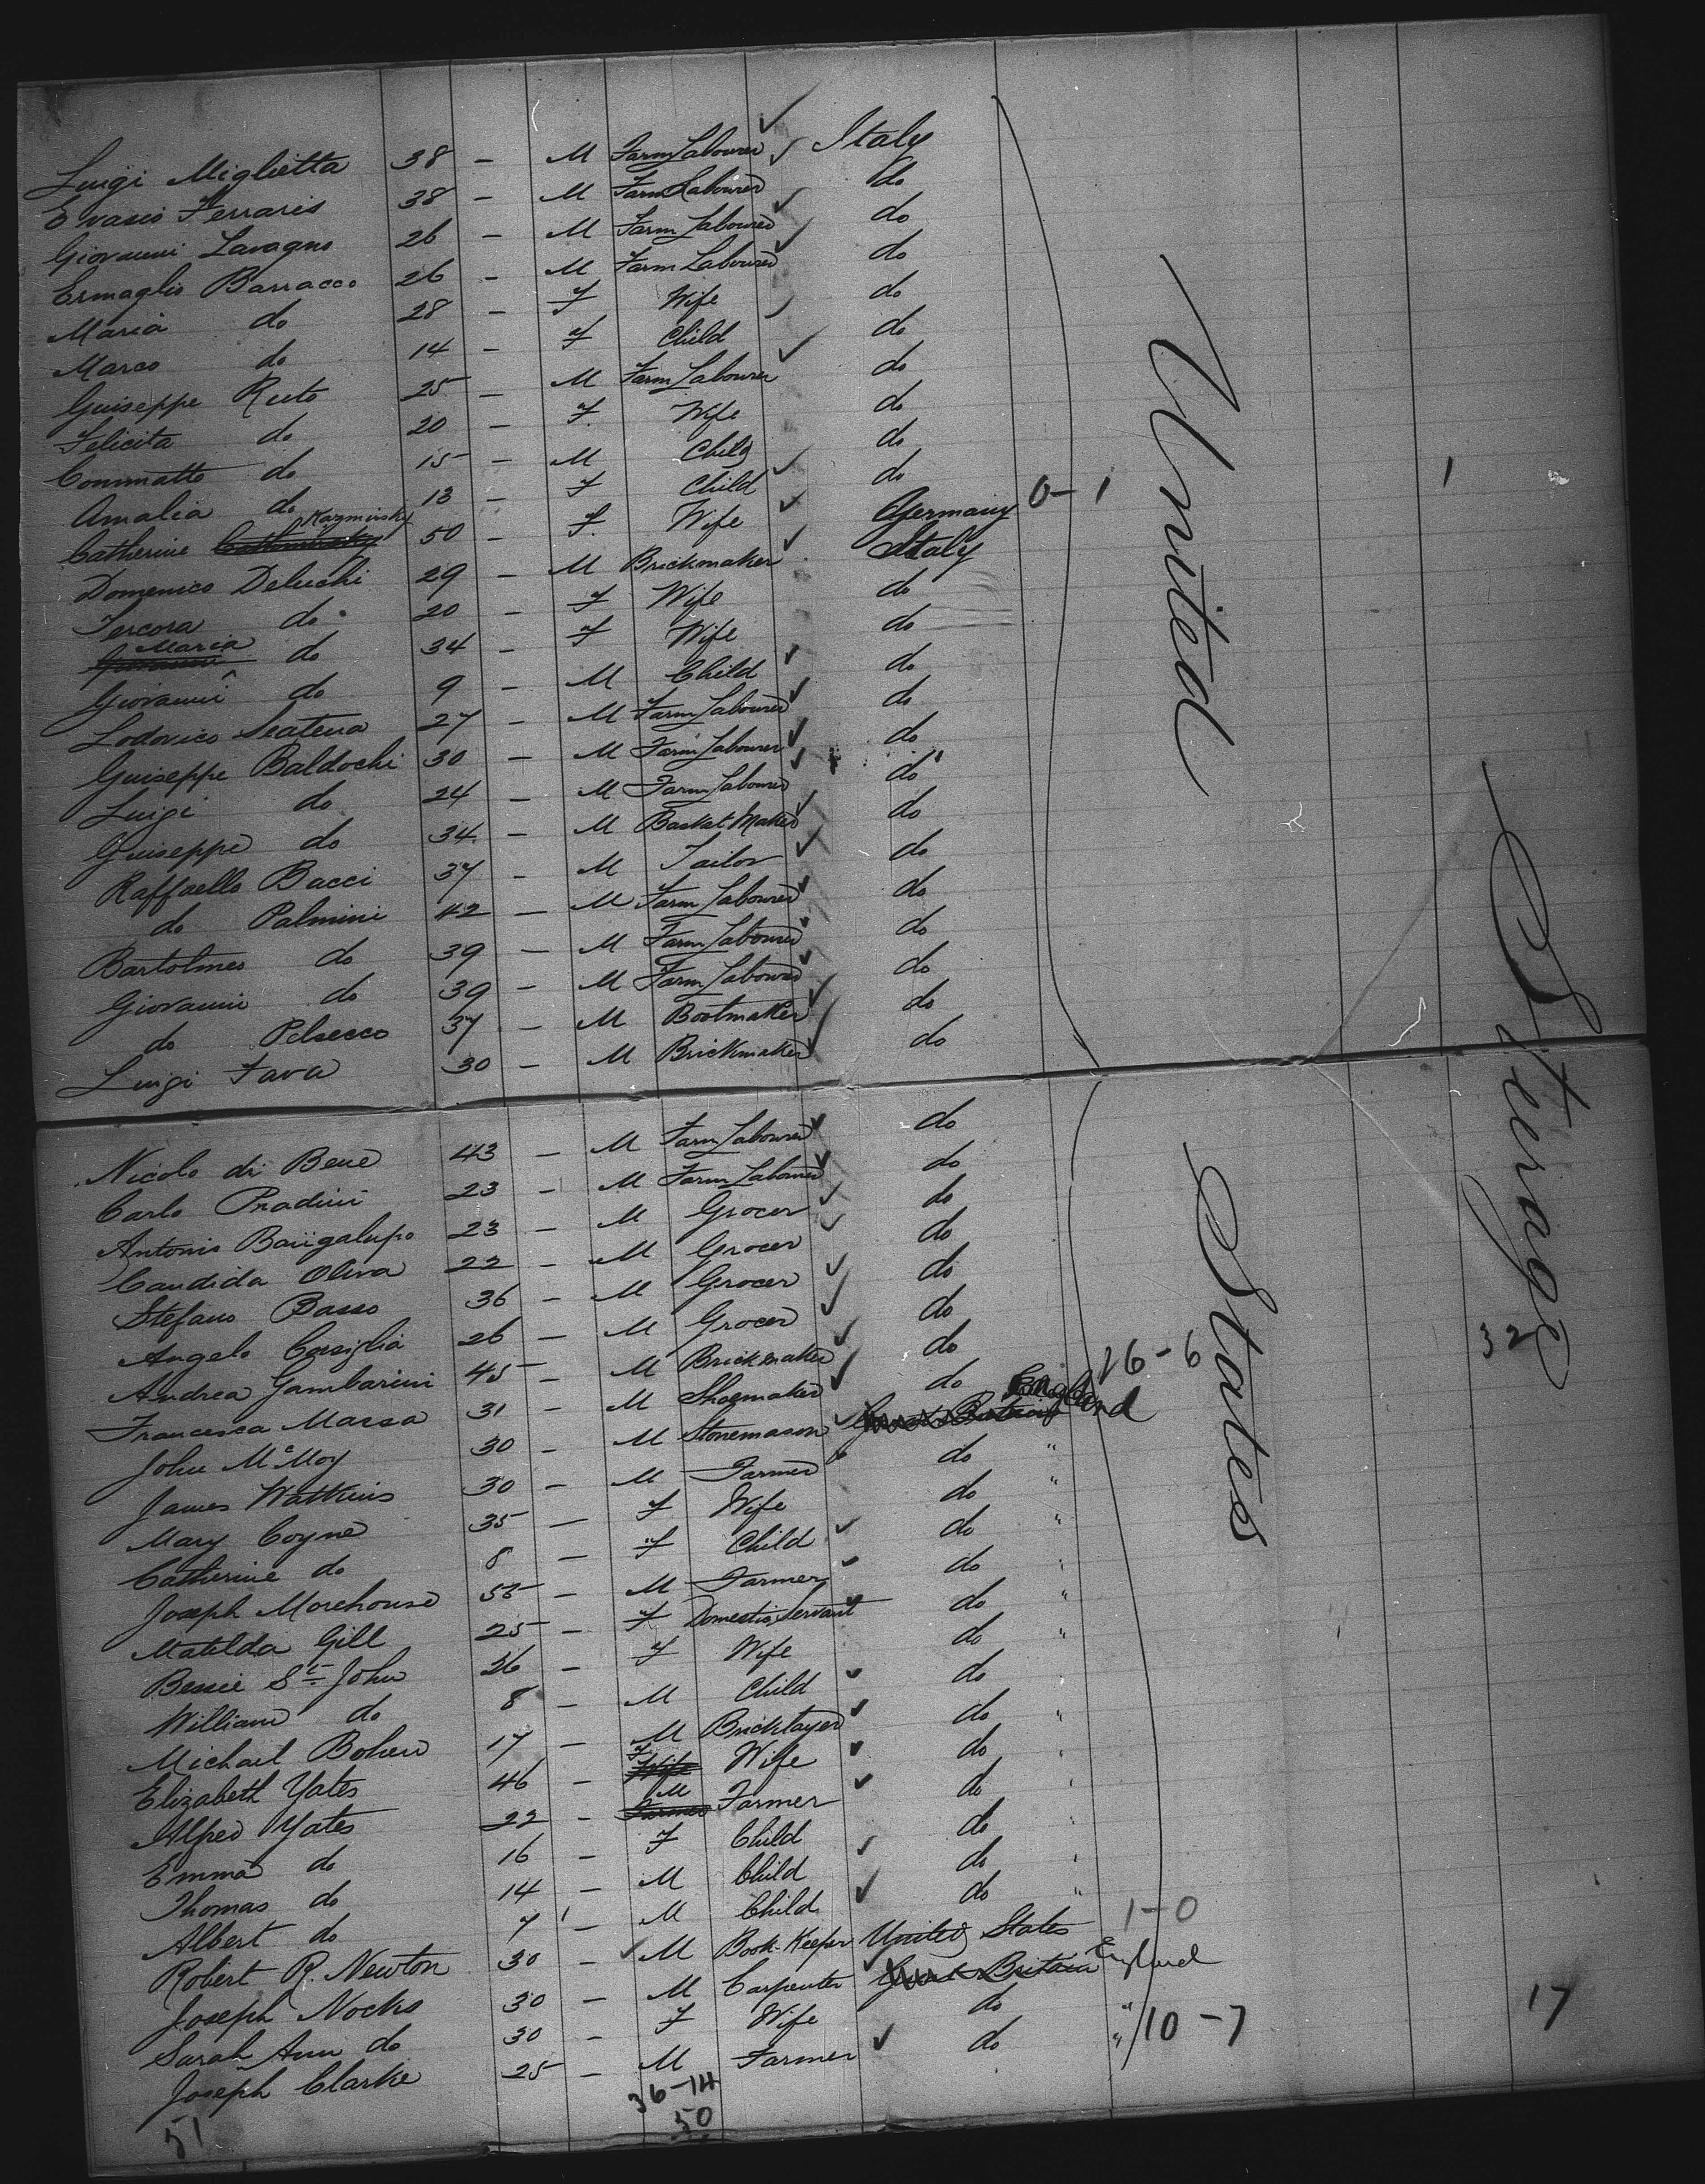 Luigi Miglietta 38 — M Farm Labourer ✓ Italy
Evasio Ferraris 38 — M Farm Labourer do
Giovanni Lavagno 26 — M Farm Laboured do
Ermaglio Barracco 26 — M Farm Laboured do
Maria do 28 — F Wife do
Marco do 14 — F Child do
Guiseppe Ruto 25 — M Farm Labourer do
Felicita do 20 — F. Wife do
do 15 — M Child do
Amalia do 13 — F Child do
Catherine Kazminsky 50 — F. Wife Germany 0-1 1
Domenico Deluchi 29 — M Brickmaker Italy
Tercora do 20 — F Wife do
Maria do 34 — F Wife do
Giovanni do 9 — M Child do
Lodovico Scatena 27 — M Farm Laboured do
Guiseppe Baldochi 30 — M Farm Labourer do
Luigi do 24 — M Farm Laboured do
Guiseppe do 34 — M Basket Maker do
Raffaello Bacci 37 — M Tailor do
do Palmini 42 — M Farm Laboured do
Bartolmeo do 39 — M Farm Laboured do
Giovanni do 39 — M Farm Laboured do
do Pelsecco 37 — M Bootmaker do
Luigi Fava 30 — M Brickmaker do
Nicolo di Bene 43 — M Farm Laboured do
Carlo Pradini 23 — M Farm Laboured do
Antonio 23 — M Grocer do
Candida Oliva 22 — M Grocer do
Stefano Basso 36 — M Grocer do
Angelo Casiglia 26 — M Grocer do
Andrea Gambarini 45 — M Brickmaker do
Francesca Massa 31 — M Shoemaker do 26-6 32
John McMoy 30 — M Stonemason Great Britain England
James Watkins 30 — M Farmer do "
Mary Coyne 35 — F Wife do "
Catherine do 8 — F Child do "
Joseph Morehouse 55 — M Farmer do "
Matilda Gill 25 — F Domestic Servant do "
Bessie St. John 26 — F Wife do "
William do 8 — M Child do
Michael Bohen 17 — M Bricklayer do "
Elizabeth Yates 46 — Wife F Wife do "
Alfred Yates 22 — Farmer M Farmer do "
Emma do 16 — F Child do "
Thomas do 14 — M Child do "
Albert do 7 — M Child do "
Robert R. Newton 30 — M Book-Keeper United States 1-0
Joseph Nocks 30 — M Carpenter Great Britain England
Sarah Ann do 30 — F Wife do "
Joseph Clarke 25 — M Farmer do " 10-7 17
51 36-14
50
United States
Steerage